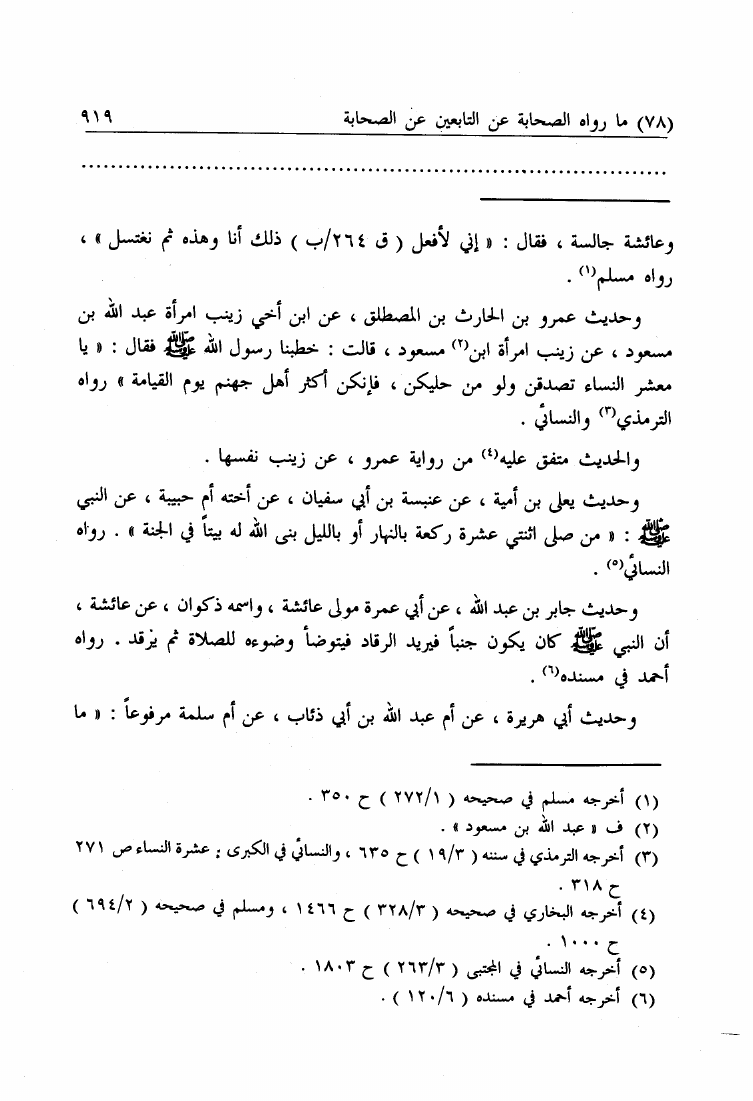 (٧٨) ما رواه الصحابة عن التابعين عن الصحابة ٩١٩
وعائشة جالسة ، فقال : « إني لأفعل ( ق ٢٦٤/ب ) ذلك أنا وهذه ثم نغتسل » ،
رواه مسلم(١) .
وحديث عمرو بن الحارث بن المصطلق ، عن ابن أخي زينب امرأة عبد الله بن
مسعود ، عن زينب امرأة ابن(٢) مسعود ، قالت : خطبنا رسول الله ﷺ فقال : « يا
معشر النساء تصدقن ولو من حليكن ، فإنكن أكثر أهل جهنم يوم القيامة » رواه
الترمذي(٣) والنسائي .
والحديث متفق عليه(٤) من رواية عمرو ، عن زينب نفسها .
وحديث يعلى بن أمية ، عن عنبسة بن أبي سفيان ، عن أخته أم حبيبة ، عن النبي
ﷺ : « من صلى اثنتي عشرة ركعة بالنهار أو بالليل بنى الله له بيتاً في الجنة » . رواه
النسائي(٥) .
وحديث جابر بن عبد الله ، عن أبي عمرة مولى عائشة ، واسمه ذكوان ، عن عائشة ،
أن النبي ﷺ كان يكون جنباً فيريد الرقاد فيتوضأ وضوءه للصلاة ثم يرقد . رواه
أحمد في مسنده(٦) .
وحديث أبي هريرة ، عن أم عبد الله بن أبي ذئاب ، عن أم سلمة مرفوعاً : « ما
(١) أخرجه مسلم في صحيحه ( ٢٧٢/١ ) ح ٣٥٠ .
(٢) ف « عبد الله بن مسعود » .
(٣) أخرجه الترمذي في سننه ( ١٩/٣ ) ح ٦٣٥ ، والنسائي في الكبرى : عشرة النساء ص ٢٧١
ح ٣١٨ .
(٤) أخرجه البخاري في صحيحه ( ٣٢٨/٣ ) ح ١٤٦٦ ، ومسلم في صحيحه ( ٦٩٤/٢ )
ح ١٠٠٠ .
(٥) أخرجه النسائي في المجتبى ( ٢٦٣/٣ ) ح ١٨٠٣ .
(٦) أخرجه أحمد في مسنده ( ١٢٠/٦ ) .